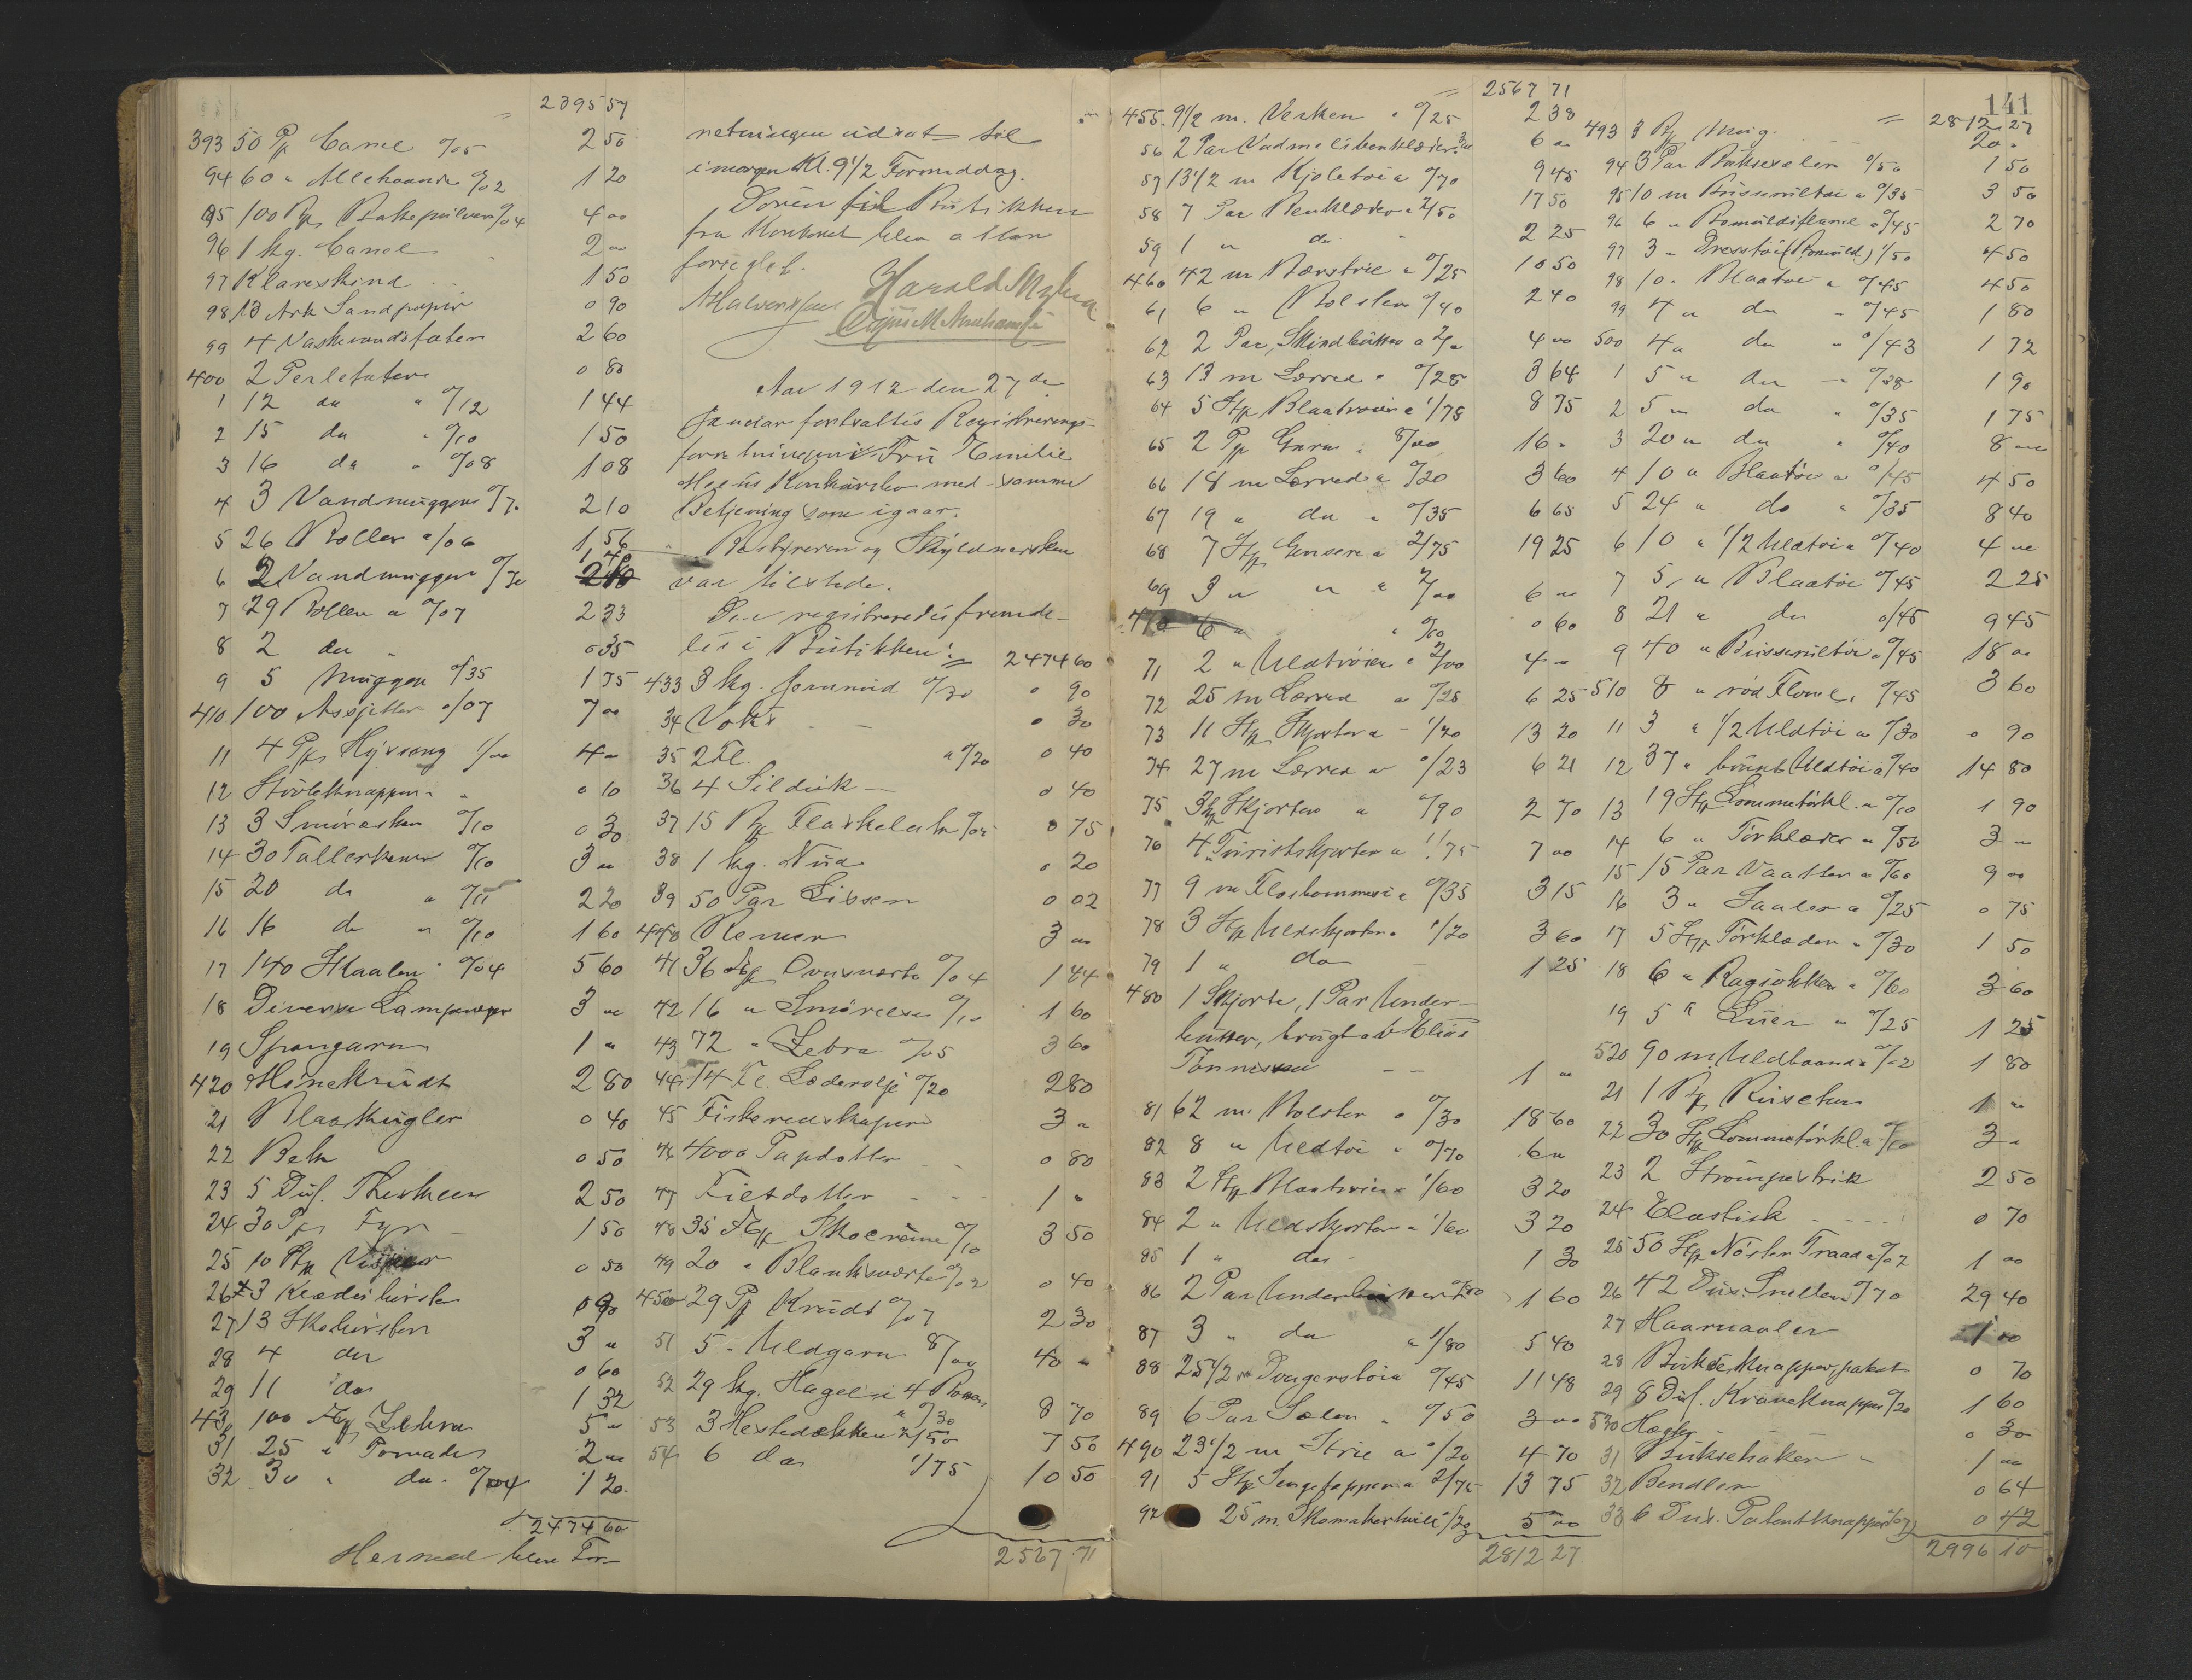 = 2395 57
393 50 Pk Canel o/05 2 50
94 60 " Allehaande o/02 1 20
95 100 Pk Bakepulver o/04 4 00
96 1 kg. Canel 2 00
97 Klareskind 1 50
98 18 Ark Sandpapir 0 90
99 4 Vaskevandsfater 2 60
400 2 Perlefater 0 80
1 12 do " o/12 1 44
2 15 do " o/10 1 50
3 16 do " o/08 1 08
4 3 Vandmugger o/70 2 10
5 26 Boller o/06 1 56
6 2 Vandmugger o/70 1 40
7 29 Boller a o/07 2 33
8 2 do " 0 35
9 5 Mugger o/35 1 75
410 100 Assjetter o/07 7 00
11 4 Pk 1/00 4 "
12 Støvleknapper 0 10
13 3 Smøræsker o/10 0 30
14 30 Tallerkener o/10 3 "
15 20 do " o/11 2 20
16 16 do " o/10 1 60
17 140 Skaaler o/04 5 60
18 Diverse Lampe 3 "
19 Spangarn 1 "
420 Mønekrudt 2 80
21 Blaakugler 0 40
22 Bek 0 50
23 5 Dus. Theskeer 2 50
24 30 Pk Fyr 1 50
25 10 Stk 0 50
26 3 Klædesbørster 0 90
27 13 Skobørster 3 "
28 4 do 0 60
29 11 do 1 32
430 100 Stk Zebra 5 "
31 25 " Pomade 2 "
32 30 " do. o/04 1 20
2474 60
Hermed blev For-
retningen udsat til
imorgen Kl. 9 1/2 Formiddag.
Døren til Butikken
fra Kontoret blev atter
forseglet.
Harald
Aar 1912 den 27de
Januar fortsattes Registrerings-
forretningen i Fru Emilie
Konkursbo med samme
Betjening som igaar.
Bestyreren og Skyldnersken
var tilstede.
Der registreredes fremde-
les i Butikken: = 2474 60
433 3 kg. Jernmid o/30 0 90
34 Voks - 0 30
35 2 Fl. a o/20 0 40
36 4 Silduk - 0 40
37 15 Pk Flaskelak o/05 0 75
38 1 kg. 0 20
39 50 Par Lisser 0 02
440 Remer 3 00
41 36 Stk Ovnsværte o/04 1 44
42 16 " Smørelse o/10 1 60
43 72 " Zebra o/05 3 60
44 14 Fl. Læderolje o/20 2 80
45 Fiskeredskaper 3 "
46 4000 Papdotter 0 80
47 Filtdotter 1 "
48 35 Stk Skocreme o/10 3 50
49 20 " Blanksværte o/02 0 40
450 29 Pk Krudt o/07 2 30
51 5 " Uldgarn 8/00 40 "
52 29 kg. Hagel i 4 Poser a o/30 8 70
53 3 Hestedækken 2/50 7 50
54 6 do 1/75 10 50
2567 71
141
= 2567 71
455 9 1/2 m. Verken " o/25 2 38
56 2 Par Vadmelsbenklæder 3/00 6 00
57 13 1/2 m Kjoletøi a o/70 9 45
58 7 Par Benklæder a 2/50 17 50
59 1 " do - 2 25
460 42 m Bærstrie a o/25 10 50
61 6 " Bolster o/40 2 40
62 2 Par Skindbukser a 2/00 4 00
63 13 m Lærred " o/28 3 64
64 5 Stk Blaatrøier a 1/75 8 75
65 2 Pk Garn " 8/00 16 "
66 18 m Lærred a o/20 3 60
67 19 " do " o/35 6 65
68 7 Stk Gensere a 2/75 19 25
69 3 " " " 2/00 6 "
470 6 " " o/10 0 60
71 2 " Uldtrøier " 2/00 4 "
72 25 m Lærred a o/25 6 25
73 11 Stk Skjorter a - 1/20 13 20
74 27 m Lærred a o/23 6 21
75 3 Stk Skjorter a o/90 2 70
76 4 " Turistskjorter a 1/75 7 00
77 9 m a o/35 3 15
78 3 Stk Uldskjorter " 1/20 3 60
79 1 " do - 1 25
480 1 Skjorte, 1 Par Under-
bukser, brugt av Elias
Tønnessen - - 1 "
81 62 m. Bolster " o/30 18 60
82 8 " Uldtøi " o/70 6 "
83 2 Stk Blaatrøier a 1/60 3 20
84 2 " Uldskjorter a 1/60 3 20
85 1 " do - 1 30
86 2 Par Underbukser o/80 1 60
87 3 " do a 1/80 5 40
88 25 1/2 m o/45 11 48
89 6 Par Sæler " o/50 3 00
490 23 1/2 m Strie a o/20 4 70
91 5 Stk Sengetepper a 2/75 13 75
92 25 m. Skomakertvill o/20 5 00
2812 27
= 2812 27
493 20 "
94 3 Par Bukseseler o/50 1 50
95 10 m Busseroltøi a o/35 3 50
96 6 " Bomuldsflanel a o/45 2 70
97 3 " Dresstøi (Bomuld) 1/50 4 50
98 10 " Blaatøi a o/45 4 50
99 4 " do " o/45 1 80
500 4 " do " o/43 1 72
1 5 " do - o/38 1 90
2 5 " do " o/35 1 75
3 20 " do " o/40 8 00
4 10 " Blaatøi a o/45 4 50
5 24 " do " o/35 8 40
6 10 " 1/2 Uldtøi a o/40 4 00
7 5 " Blaatøi o/45 2 25
8 21 " do o/45 9 45
9 40 " Busseroltøi a o/45 18 00
510 8 " rød Flonel " o/45 3 60
11 3 " 1/2 Uldtøi a o/30 0 90
12 37 " brunt Uldtøi a o/40 14 80
13 19 Stk Lommetørkl. a o/10 1 90
14 6 " Tørklæder a o/50 3 "
15 15 Par Vaatter a o/60 9 00
16 3 " Saaler a o/25 0 75
17 5 Stk Tørklæder " o/30 1 50
18 6 " Ragsokker " o/60 3 60
19 5 " Luer " o/25 1 25
520 90 m Uldbaand a o/02 1 80
21 1 Pk Ruscher 1 00
22 30 Stk Lommetørkl. a o/10 3 "
23 2 Strømpestrik 2 50
24 Elastisk 0 70
25 50 Stk Nøster Traad a o/02 1 00
26 42 Dus. Sneller o/70 29 40
27 Haarnaaler 1 00
28 Bukseknapper, patent 0 70
29 8 Dus. Kraveknapper o/20 1 60
530 Hægter 0 30
31 Buksehaker - 1 00
32 Bendler 0 64
33 6 Dus. Patentknapper o/07 0 42
2996 10